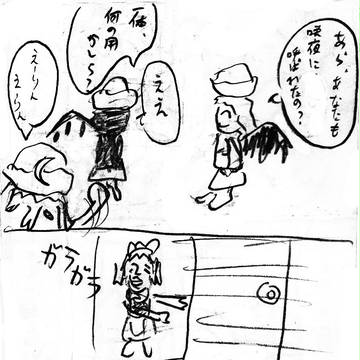 あら、あなたも
咲夜に
呼ばれたの?
ええ
一体、
何の用
かしら?
えーりん
えーりん
ガラ
ガラ